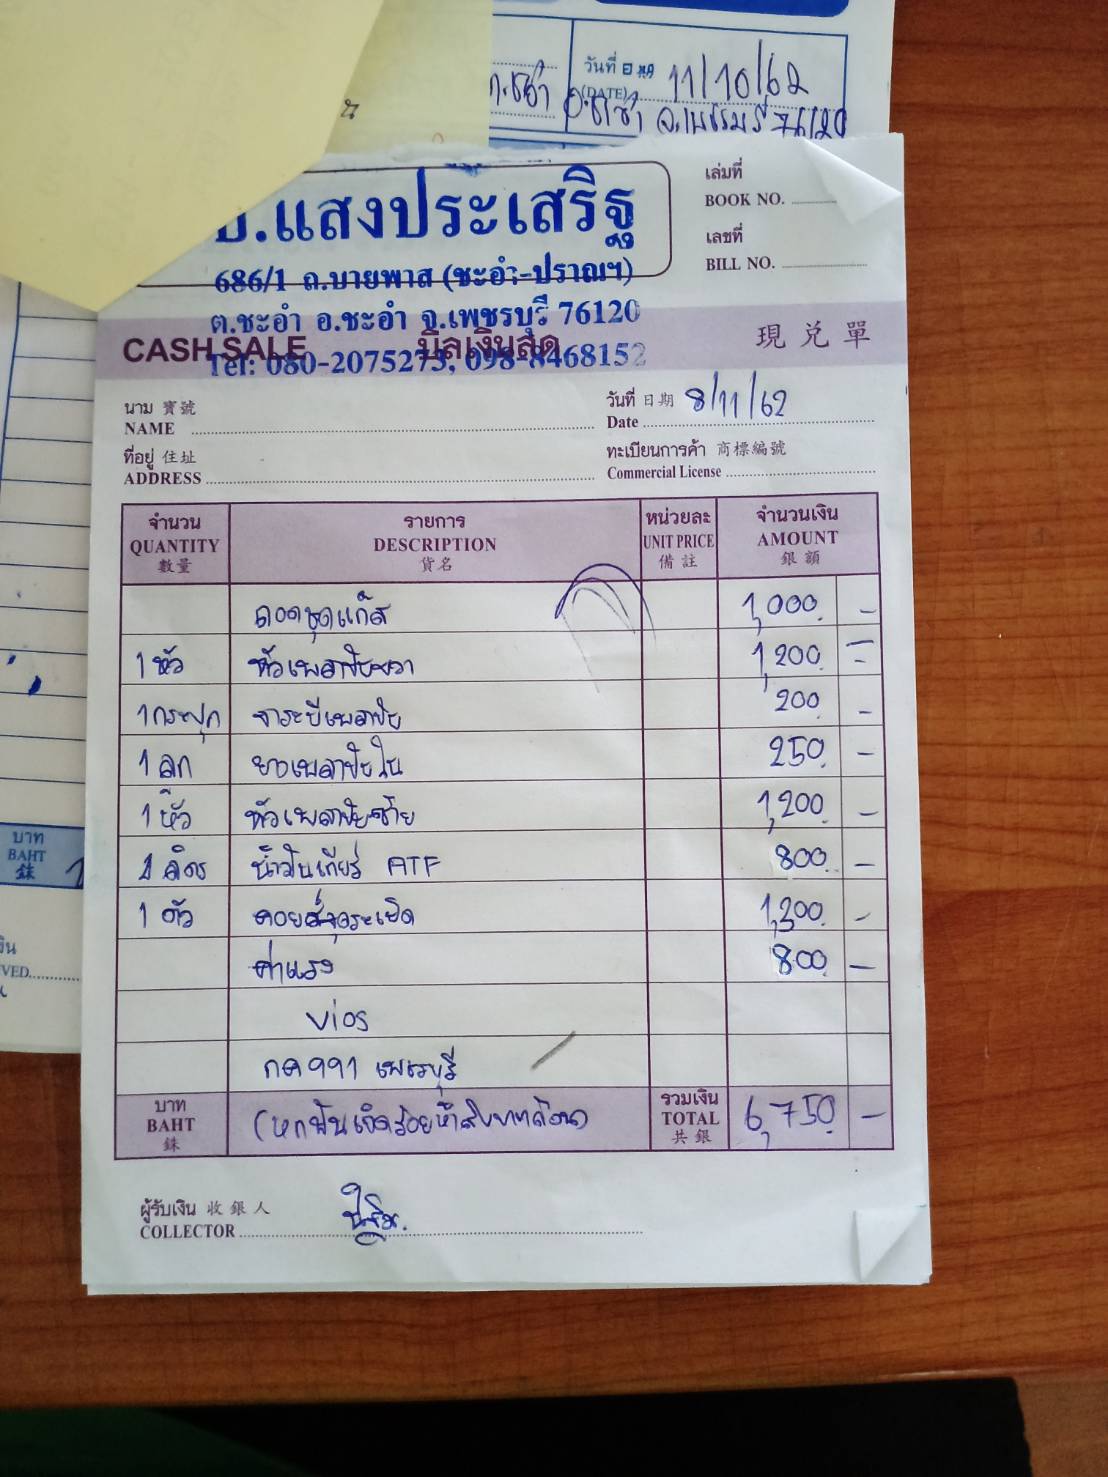 วันที่
(DATE) 11/10/62
อ.ชะอำ จ.เพชรบุรี 76120
.แสงประเสริฐ
686/1 ถ.บายพาส (ชะอำ-ปราณฯ)
ต.ชะอำ อ.ชะอำ จ.เพชรบุรี 76120
Tel: 080-2075273, 098-8468152
เล่มที่
BOOK NO.
เลขที่
BILL NO.
CASH SALE บิลเงินสด 現兑單
นาม 寶號
NAME
วันที่ 日期 8/11/62
Date
ที่อยู่ 住址
ADDRESS
ทะเบียนการค้า 商標編號
Commercial License
จำนวน รายการ หน่วยละ จำนวนเงิน
QUANTITY DESCRIPTION UNIT PRICE AMOUNT
數量 貨名 備註 銀額
ถอดชุดแก๊ส 1,000 -
1 หัว หัวเพลาขับขวา 1,200 -
1 กระปุก จาระบีเพลาขับ 200 -
1 ลูก ยางเพลาขับใน 250 -
1 หัว หัวเพลาขับซ้าย 1,200 -
4 ลิตร น้ำมันเกียร์ ATF 800 -
1 ตัว คอยล์จุดระเบิด 1,300 -
ค่าแรง 800 -
vios
กค 991 เพชรบุรี
บาท
BAHT
銖
(หกพันเจ็ดร้อยห้าสิบบาทถ้วน)
รวมเงิน
TOTAL
共銀
6,750 -
ผู้รับเงิน 收銀人
COLLECTOR
บาท
BAHT
銖